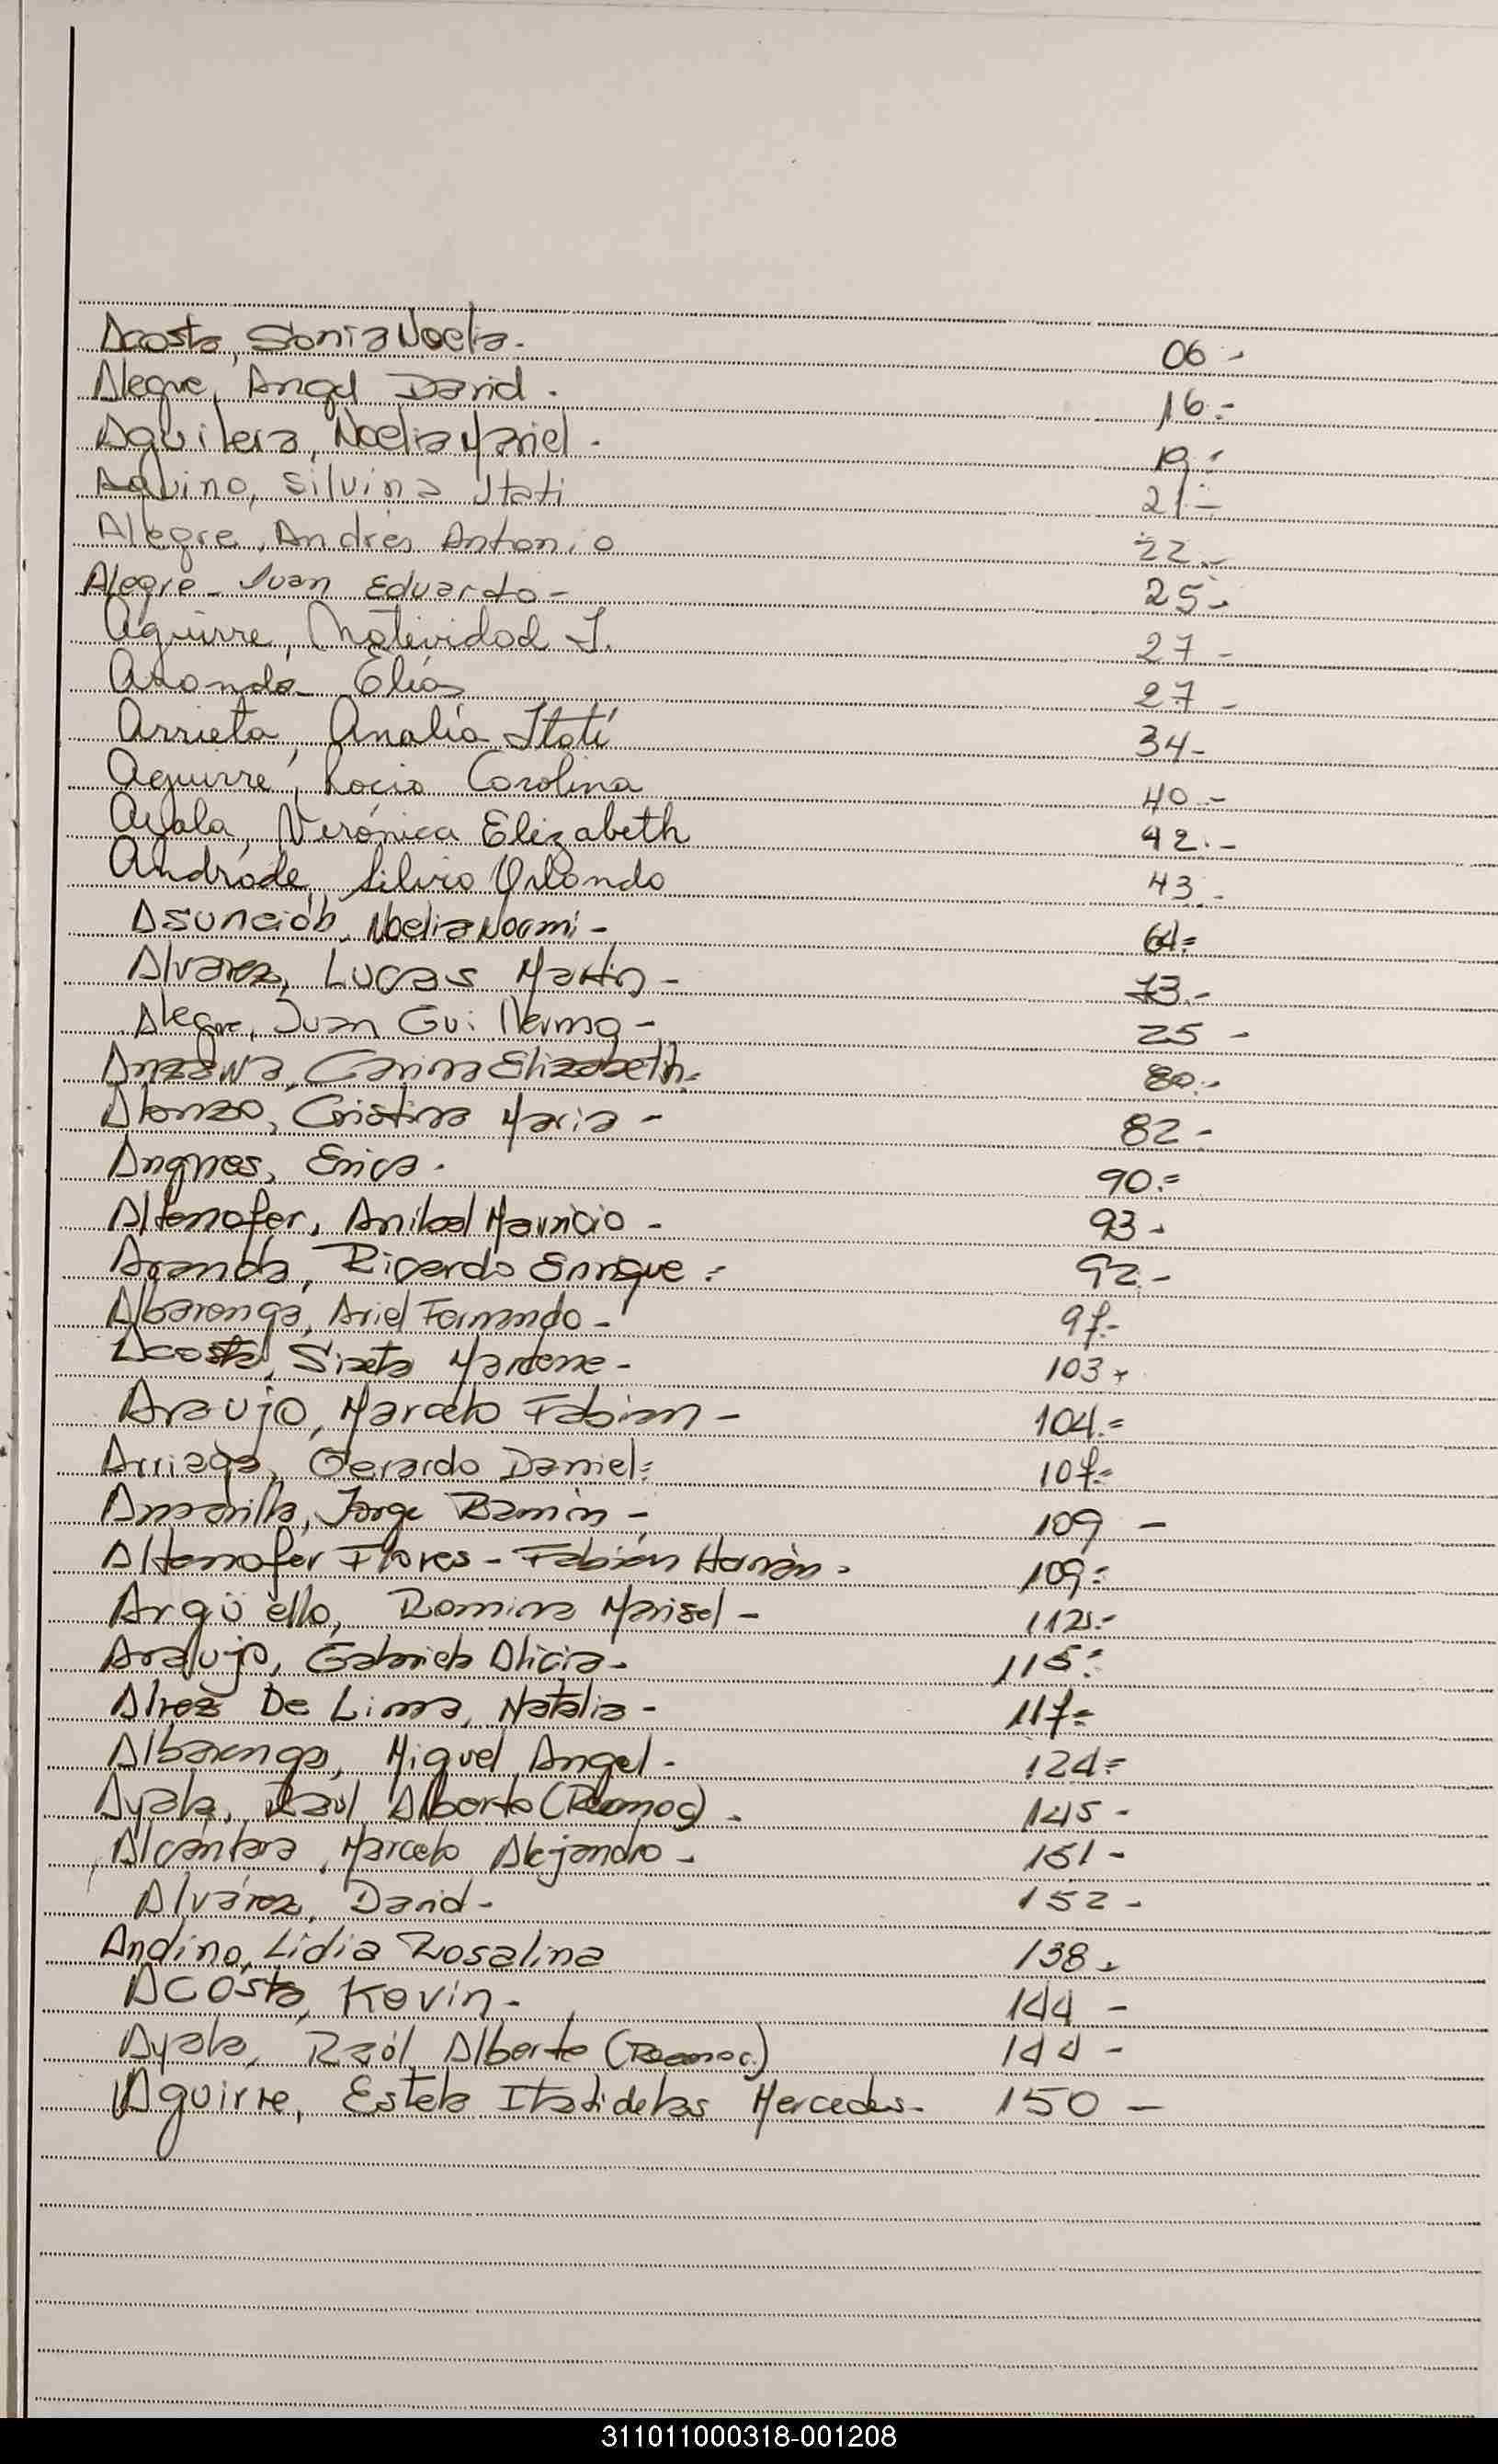 Acosta, Sonia Noelia. 06.-
Alegre, Angel David. 16.-
Aguilera, Noelia Mariel. 19.-
Aquino, Silvina Itati 21.-
Alegre, Andrés Antonio 22.-
Alegre - Juan Eduardo - 25.-
Aguirre, Natividad I. 27 -
Aranda Elias 27 -
Arrieta, Analía Itatí 34-
Aguirre, Rocio Carolina 40.-
Ayala, Verónica Elizabeth 42.-
Andrade, Silvio Orlando 43.-
Asunción, Noelia Noemi - 64=
Alvarez, Lucas Martin - 73.-
Alegre, Juan Guillermo - 25 -
Carina Elizabeth.= 80.-
Alonzo, Cristina Maria - 82 -
Erica. 90.=
Altenofer, Anibal Mauricio - 93 -
Aranda, Ricardo Enrique = 92.-
Albarenga, Ariel Fernando - 97.-
Acosta, Sixta Marlene - 103 -
Araujo, Marcelo Fabian - 104.=
Arriaga, Gerardo Daniel= 107.=
Amarilla, Jorge Ramón - 109 -
Altenofer Flores - Fabián Hernán. 109=
Argüello, Romina Marisel - 112.-
Araujo, Gabriela Alicia - 115=
Alvez De Lima, Natalia - 117=
Albarenga, Miguel Angel - 124=
Ayala, Raúl Alberto 145 -
Alcántara, Marcelo Alejandro - 151 -
Alvárez, David - 152 -
Andino, Lidia Rosalina 138 -
Acosta, Kevin - 144 -
Ayala, Raúl Alberto 144 -
Aguirre, Estela Itatí de las Mercedes - 150 -
311011000318-001208